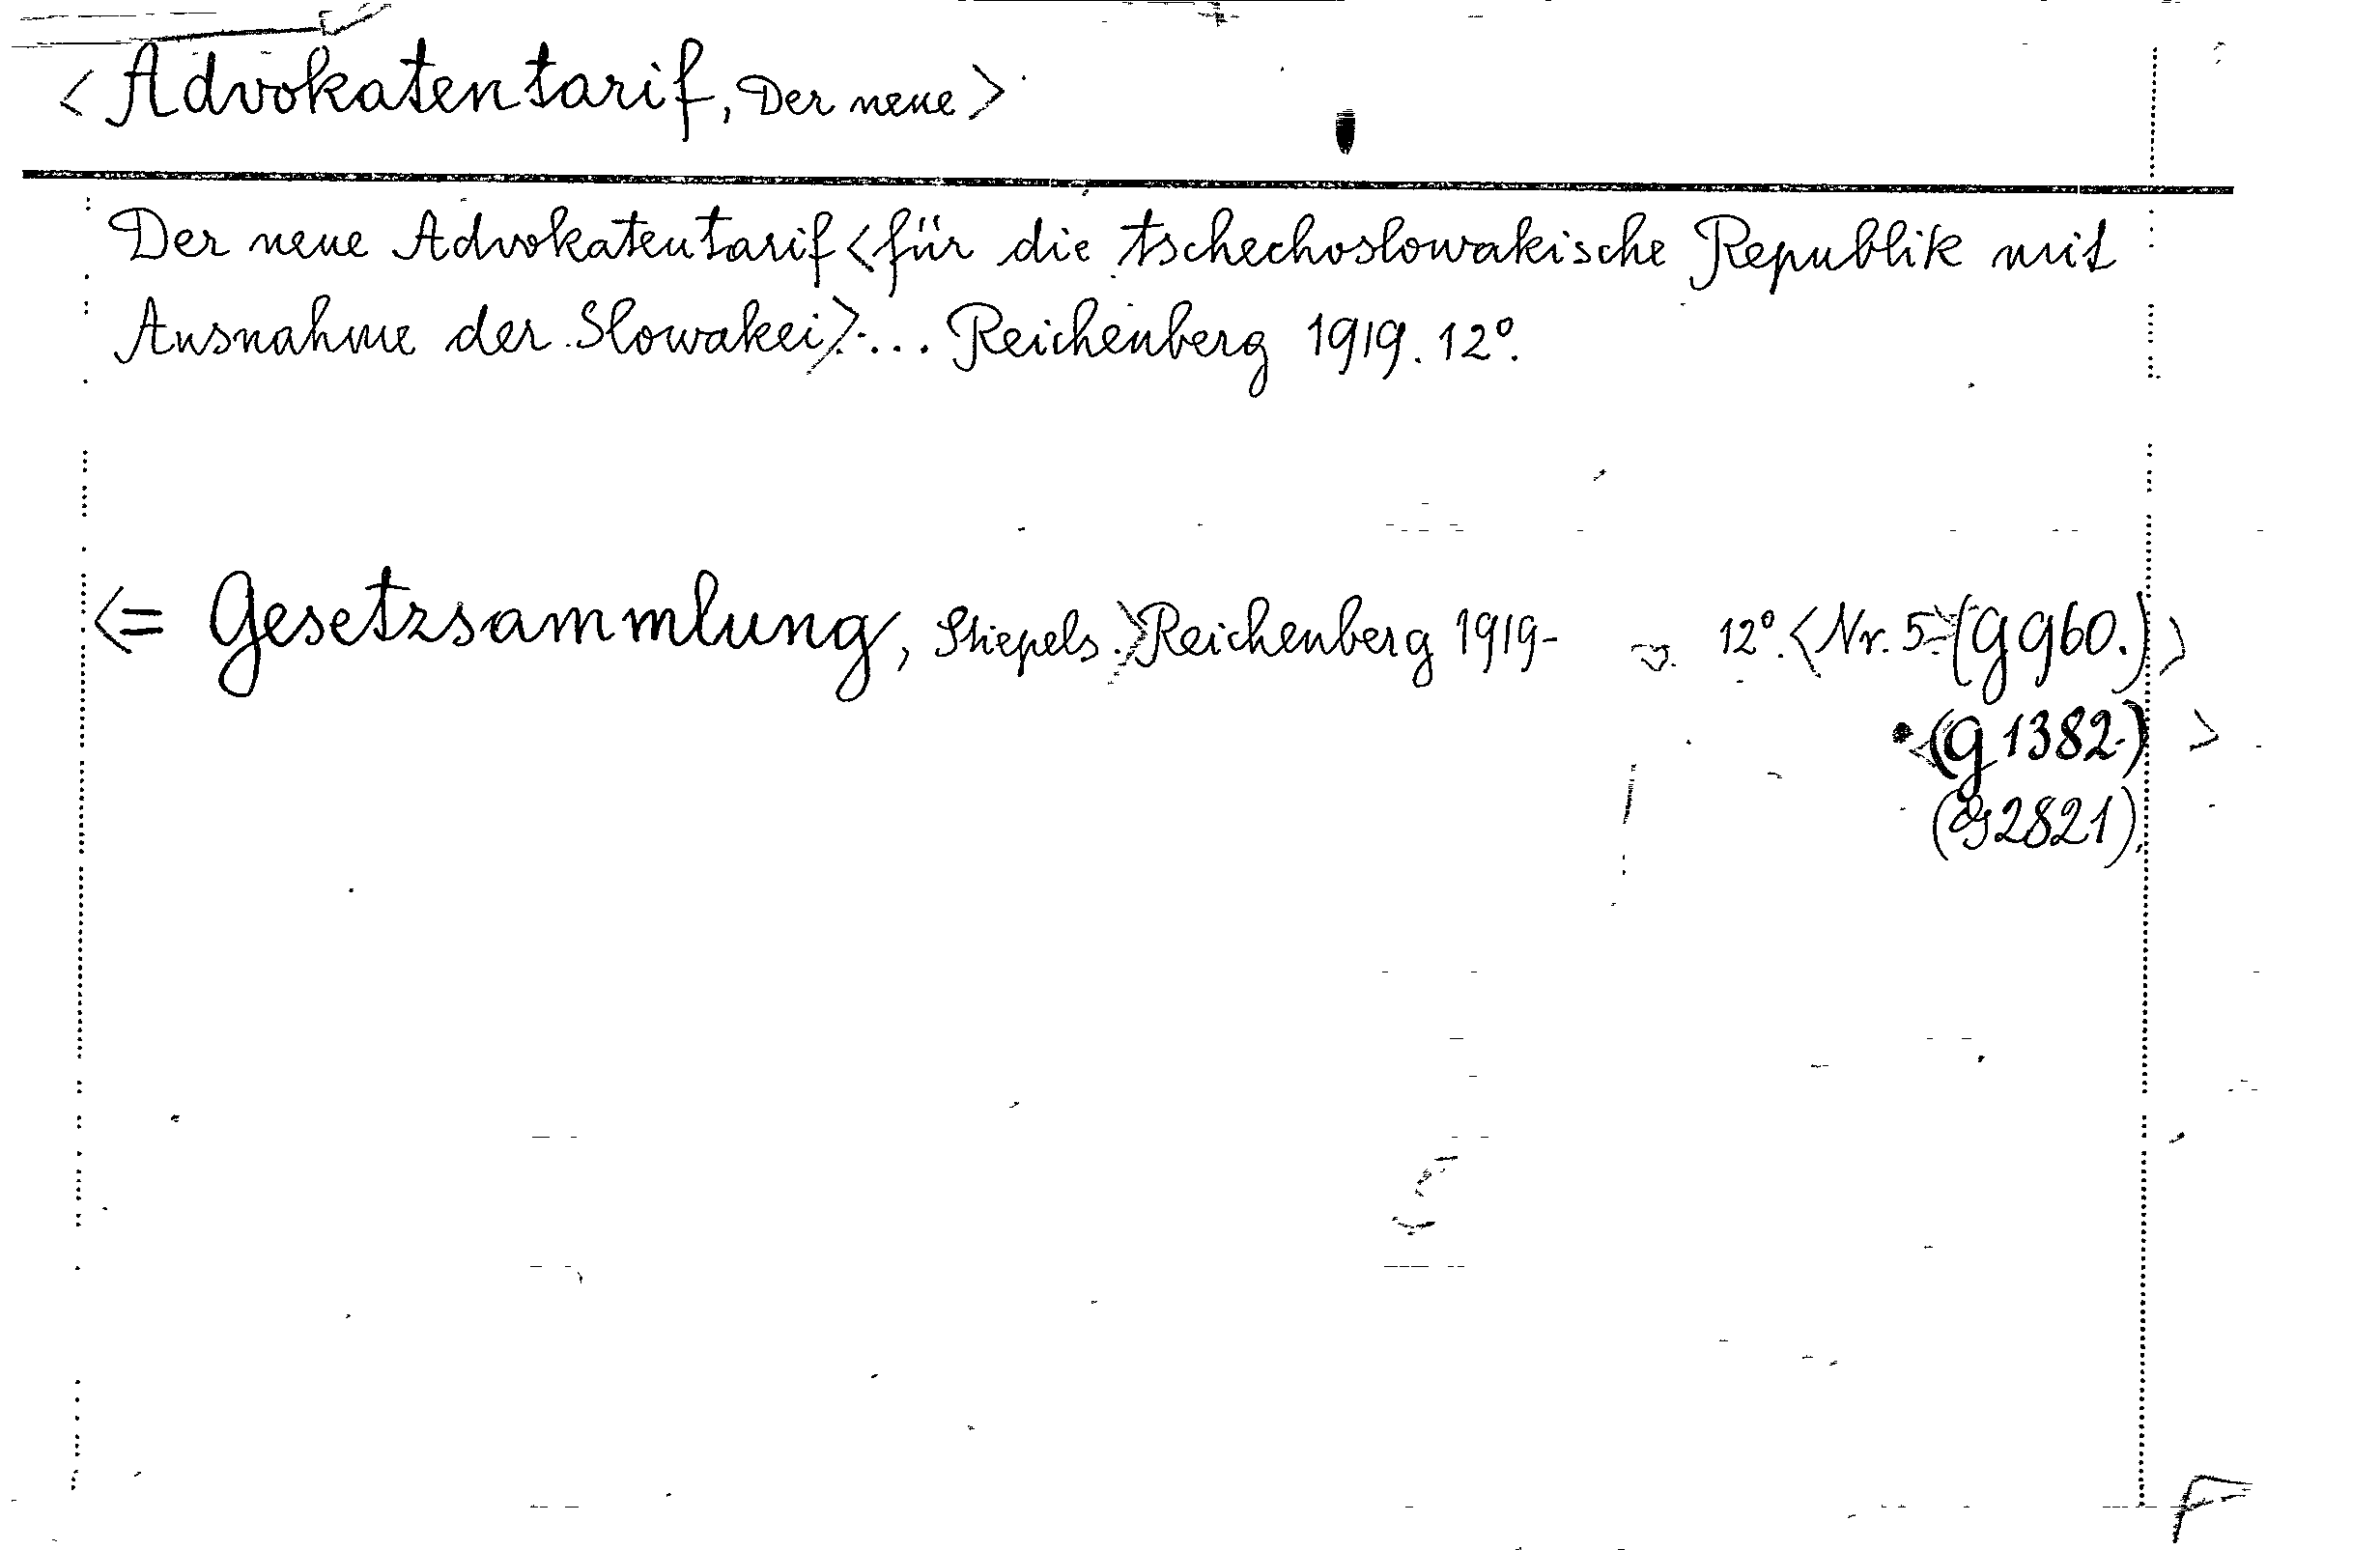 <Advokatentarif, Der neue>
Der neue Advokatentarif <für die tschechoslowakische Republik mit
Ausnahme der Slowakei>.... Reichenberg 1919. 12°.
<= Gesetzsammlung, Stiepels.> Reichenberg 1919- 12°. <Nr. 5> (G 960.)>
<(G 1382.)>
(G 2821)